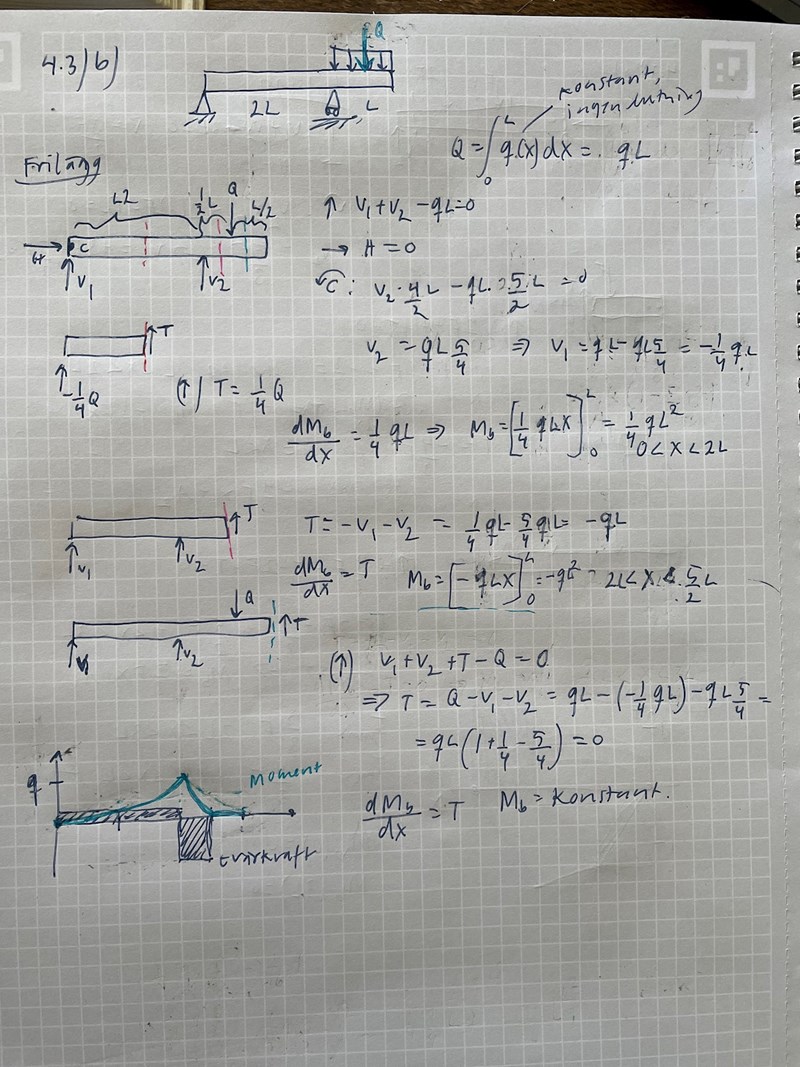 4.3) b)
Q
2L
L
konstant,
ingen lutning
Q = ∫₀ᴸ q(x) dx = qL
Friläng
L2 ½L Q L/2
H C
V₁ V₂
↑ V₁ + V₂ - qL = 0
→ H = 0
C: V₂ · 4/2 L - qL · 5/2 L = 0
V₂ = qL 5/4 ⇒ V₁ = qL - qL 5/4 = -1/4 qL
T
-1/4 Q
(↑) T = 1/4 Q
dM_b/dx = 1/4 qL ⇒ M_b = [1/4 qLx]₀ᴸ = 1/4 qL²
0 < x < 2L
T
V₁ V₂
T = -V₁ - V₂ = 1/4 qL - 5/4 qL = -qL
dM_b/dx = T M_b = [-qLx]₀ᴸ = -qL² 2L < x < 5/2 L
Q
T
V₁ V₂
(↑) V₁ + V₂ + T - Q = 0
⇒ T = Q - V₁ - V₂ = qL - (-1/4 qL) - qL 5/4 =
= qL (1 + 1/4 - 5/4) = 0
q
Moment
Tvärkraft
dM_b/dx = T M_b = konstant.